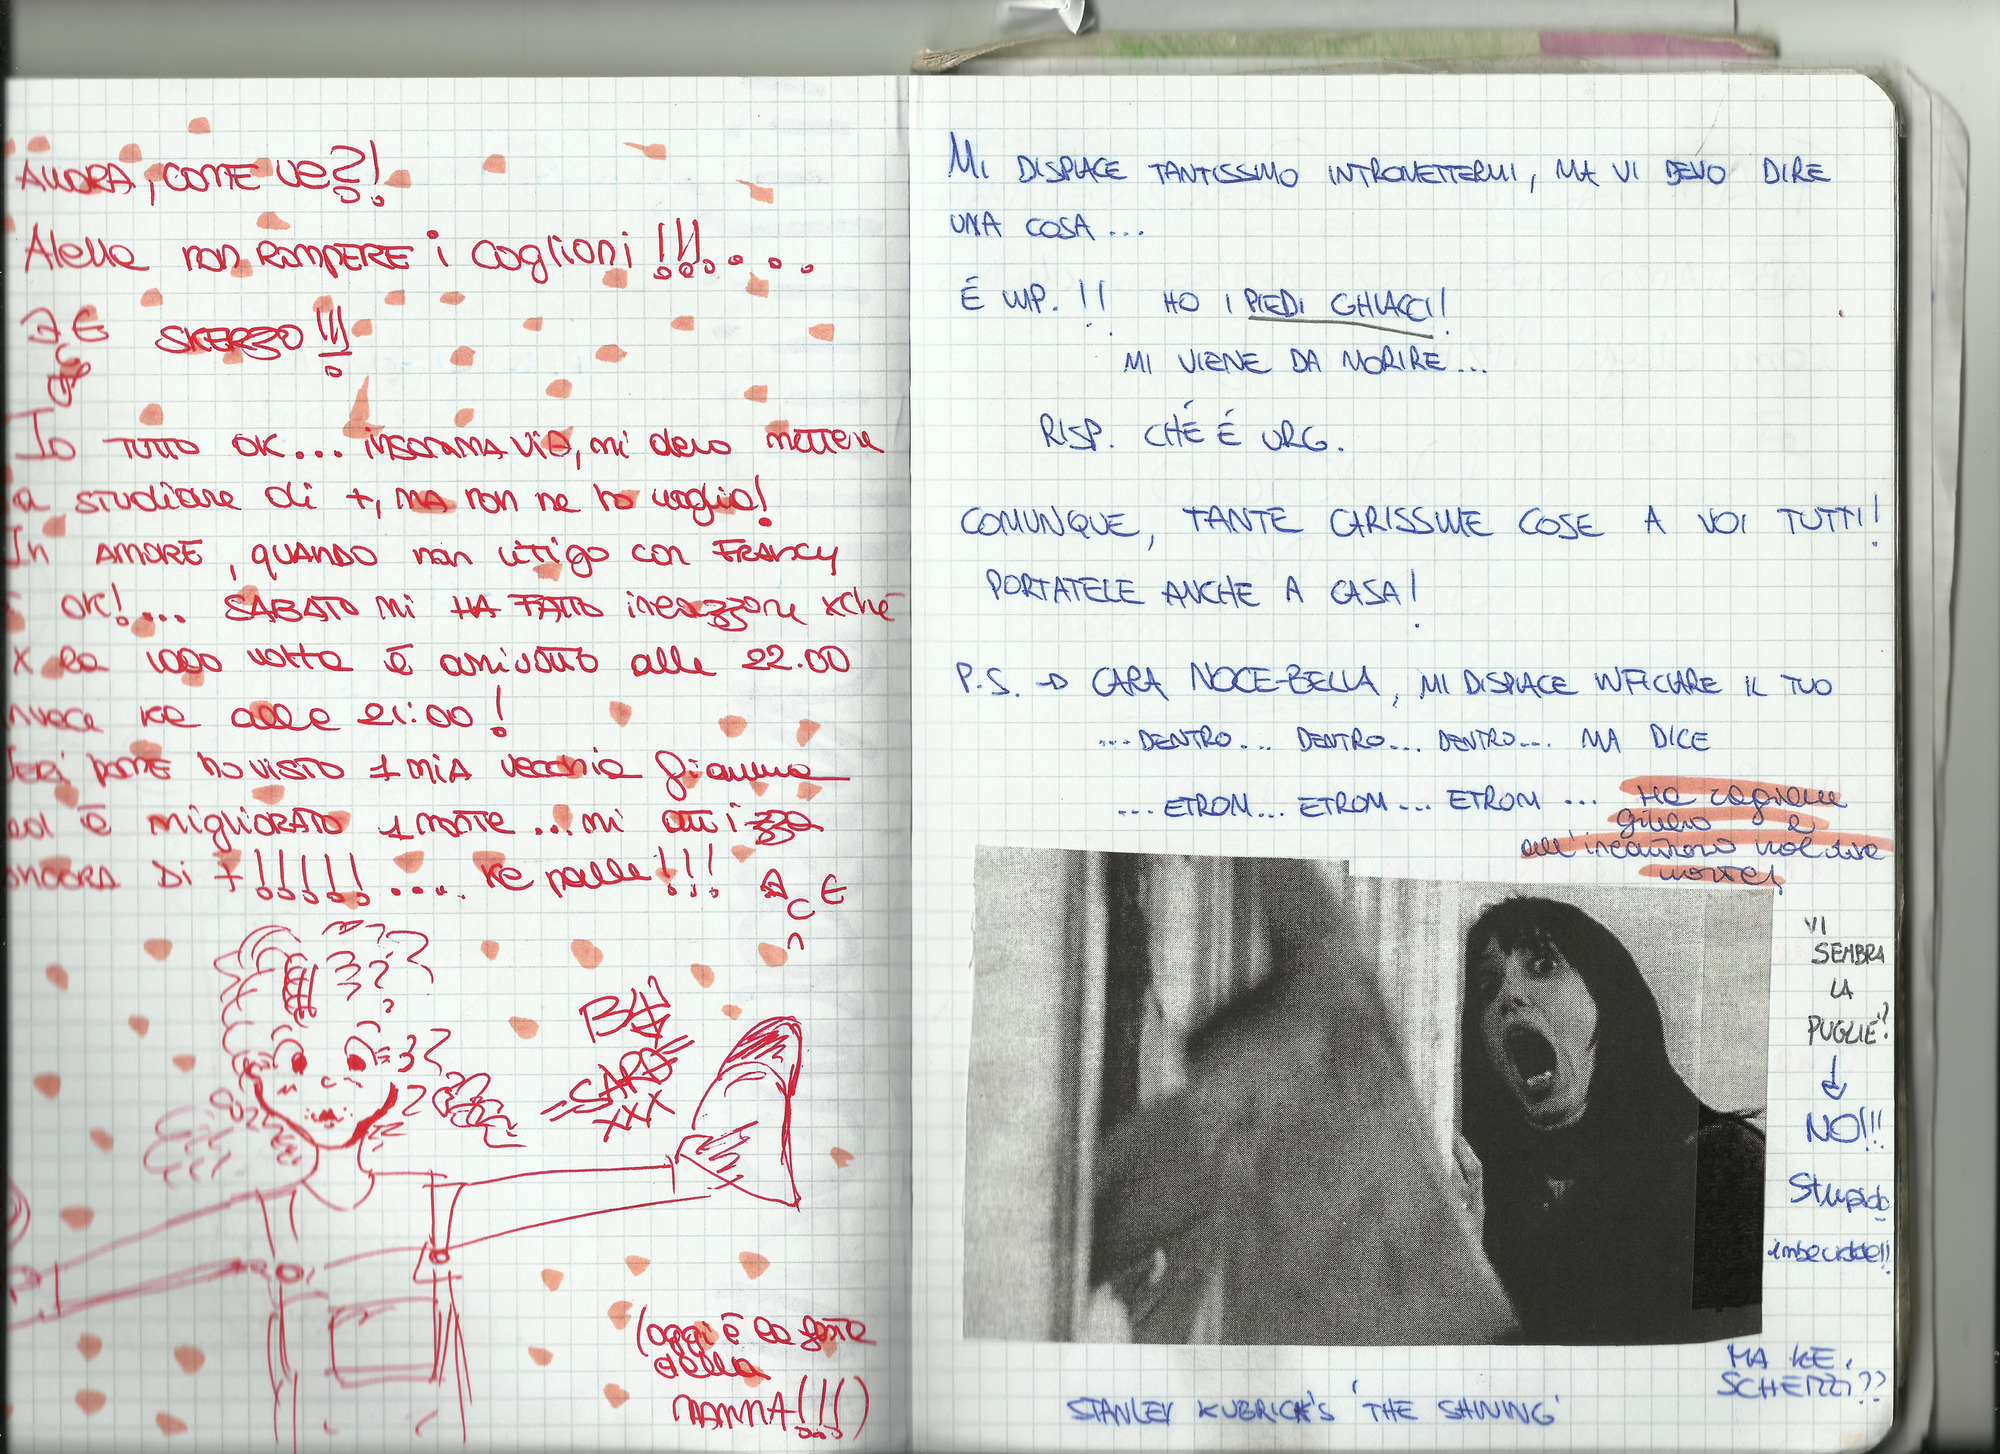 ALLORA, COME VA?!
Alella non ROMPERE i coglioni !!!....
SKERZO !!!
Io TUTTO OK... insomma via, mi devo mettere
a studiare di +, MA non ne ho voglia!
In AMORE, QUANDO non litigo con FRANCY
è OK!... SABATO mi HA FATTO incazzare xché
x la volta è arrivato alle 22.00
invece ke alle 21:00!
Ieri ho visto 1 MIA vecchia fiamma
ed è MIGLIORATO 1 MONTE... mi attizza
ANCORA DI +!!!!!!.... ke palle!!!
(oggi è la festa
della
MAMMA!!!)
MI DISPIACE TANTISSIMO INTROMETTERMI, MA VI DEVO DIRE
UNA COSA...
É IMP. !! HO I PIEDI GHIACCI!
MI VIENE DA MORIRE...
RISP. CHÉ É URG.
COMUNQUE, TANTE CARISSIME COSE A VOI TUTTI!
PORTATELE ANCHE A CASA!
P.S. → CARA NOCE-BELLA, MI DISPIACE INFICIARE IL TUO
...DENTRO... DENTRO... DENTRO... MA DICE
...ETROM... ETROM... ETROM... Ha ragione
all'incontrario vuol dire
morte!
VI
SEMBRA
LA
PUGLIE?
↓
NO!!!
Stupido
imbecille!!
MA KE
SCHERZI??
STANLEY KUBRICK'S 'THE SHINING'